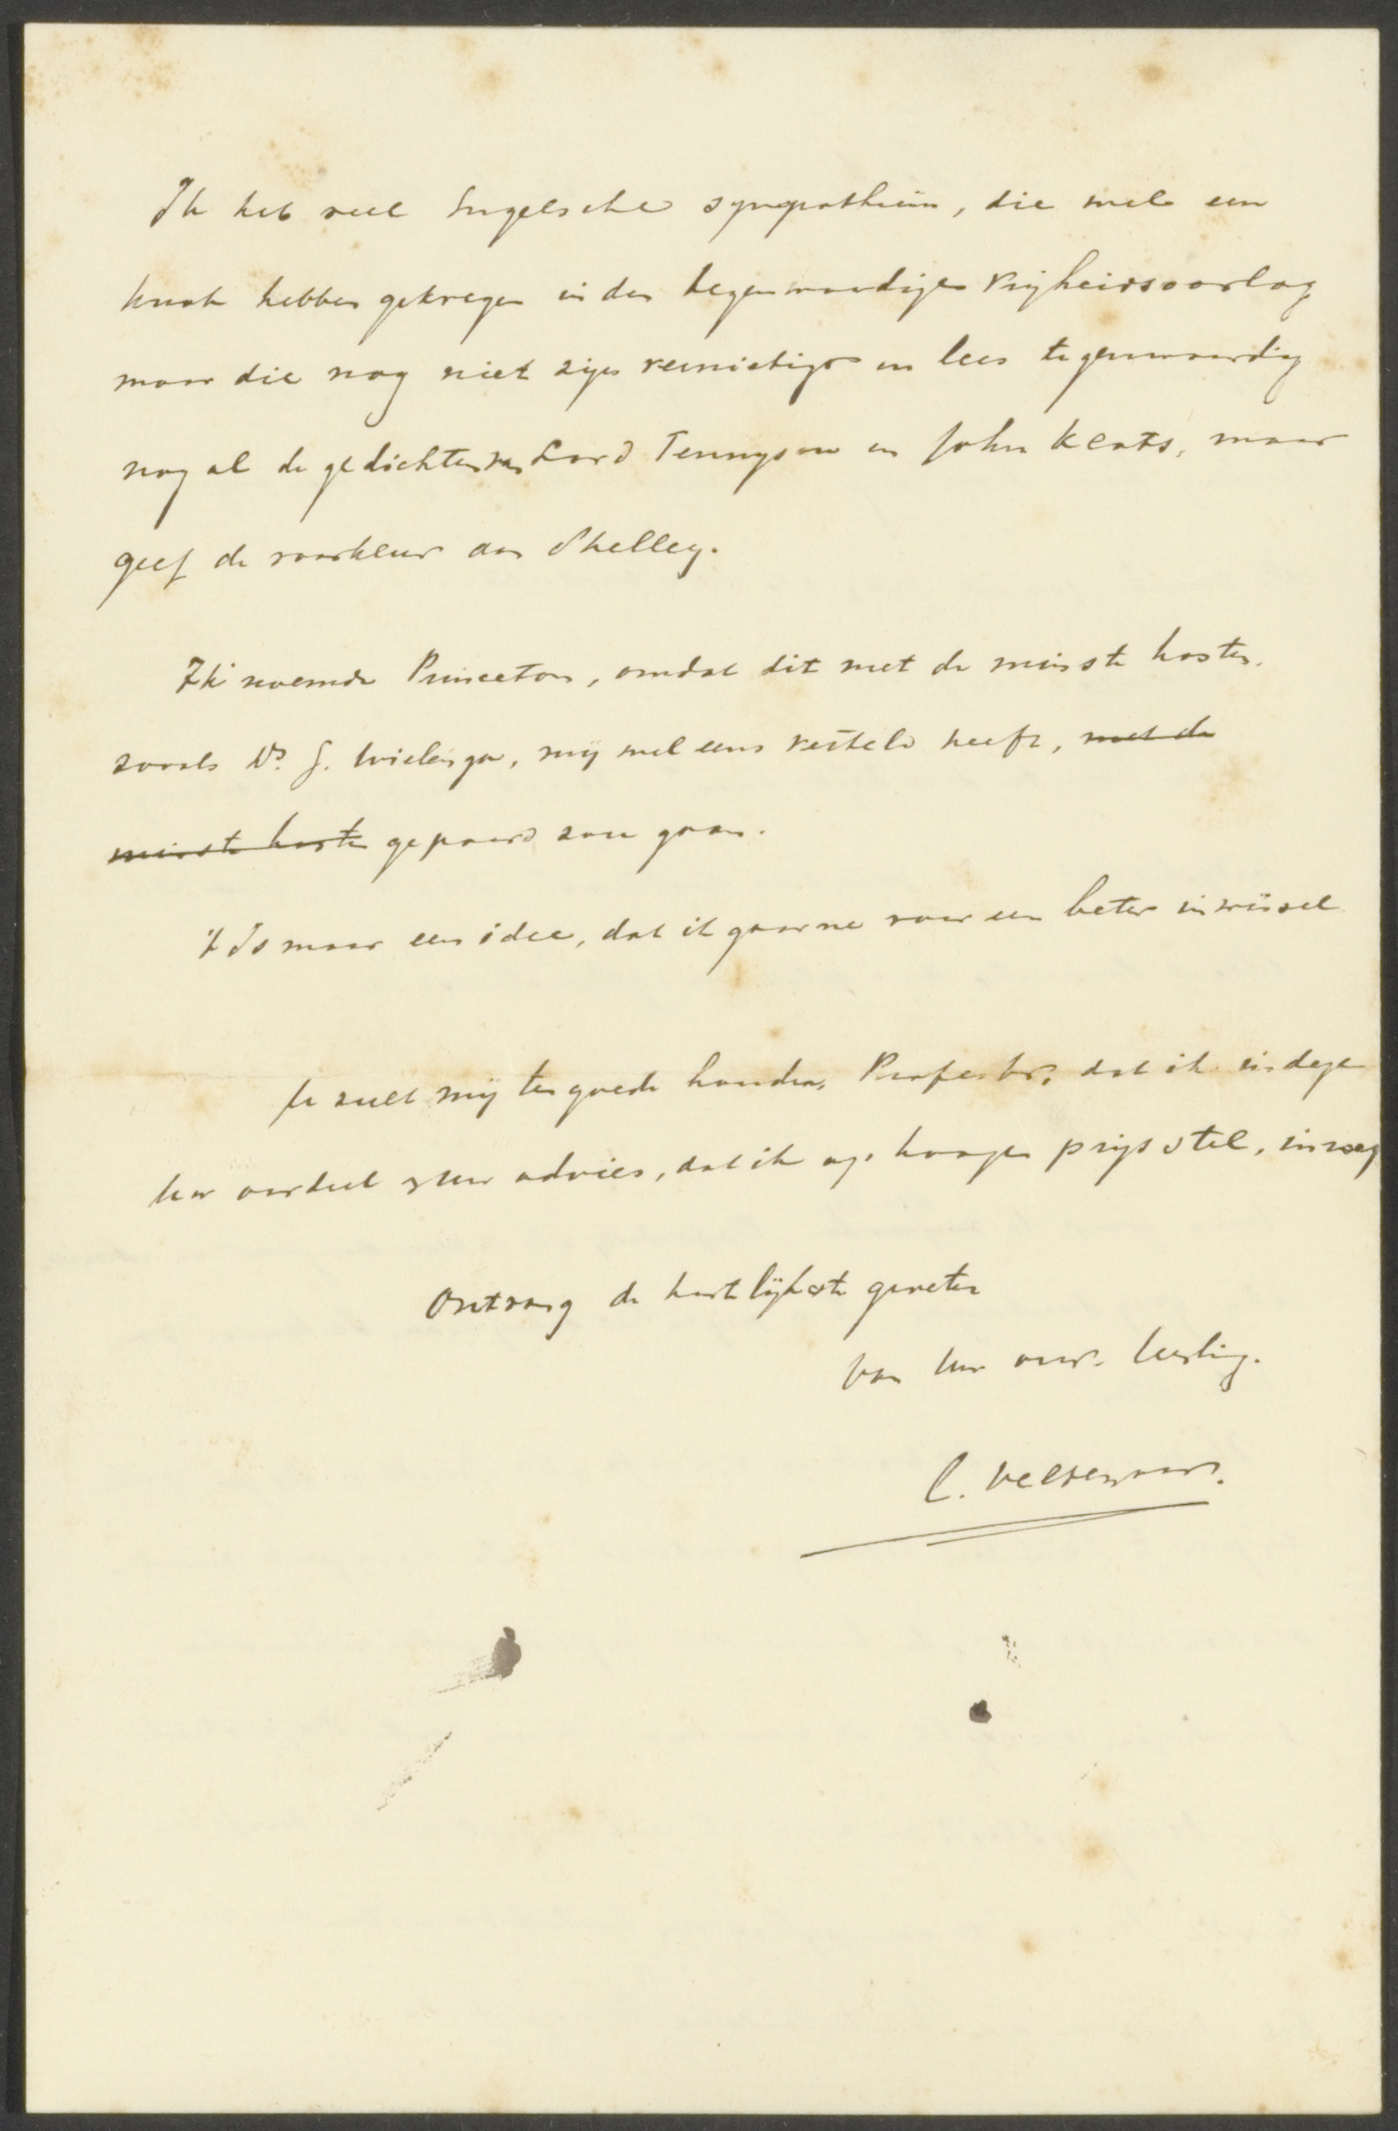 Ik heb veel Engelsche sympathieën, die wel een
knak hebben gekregen in den tegenwoordigen vrijheidsoorlog
maar die nog niet zijn vernietigd en lees tegenwoordig
nog al de gedichten van Lord Tennyson en John Keats, maar
geef de voorkeur aan Shelley.
Ik noemde Princeton, omdat dit met de minste kosten,
zooals Ds. J. Wielenga, mij wel eens verteld heeft, met de
minste kosten gepaard zou gaan.
't Is maar een idee, dat ik gaarne voor een beter inwissel
U zult mij ten goede houden, Professor, dat ik in dezen
Uw oordeel en Uw advies, dat ik op hoogen prijs stel, inroep
Ontvang de hartlijkste groeten
van Uw oud-leerling.
C. Veltenaar.